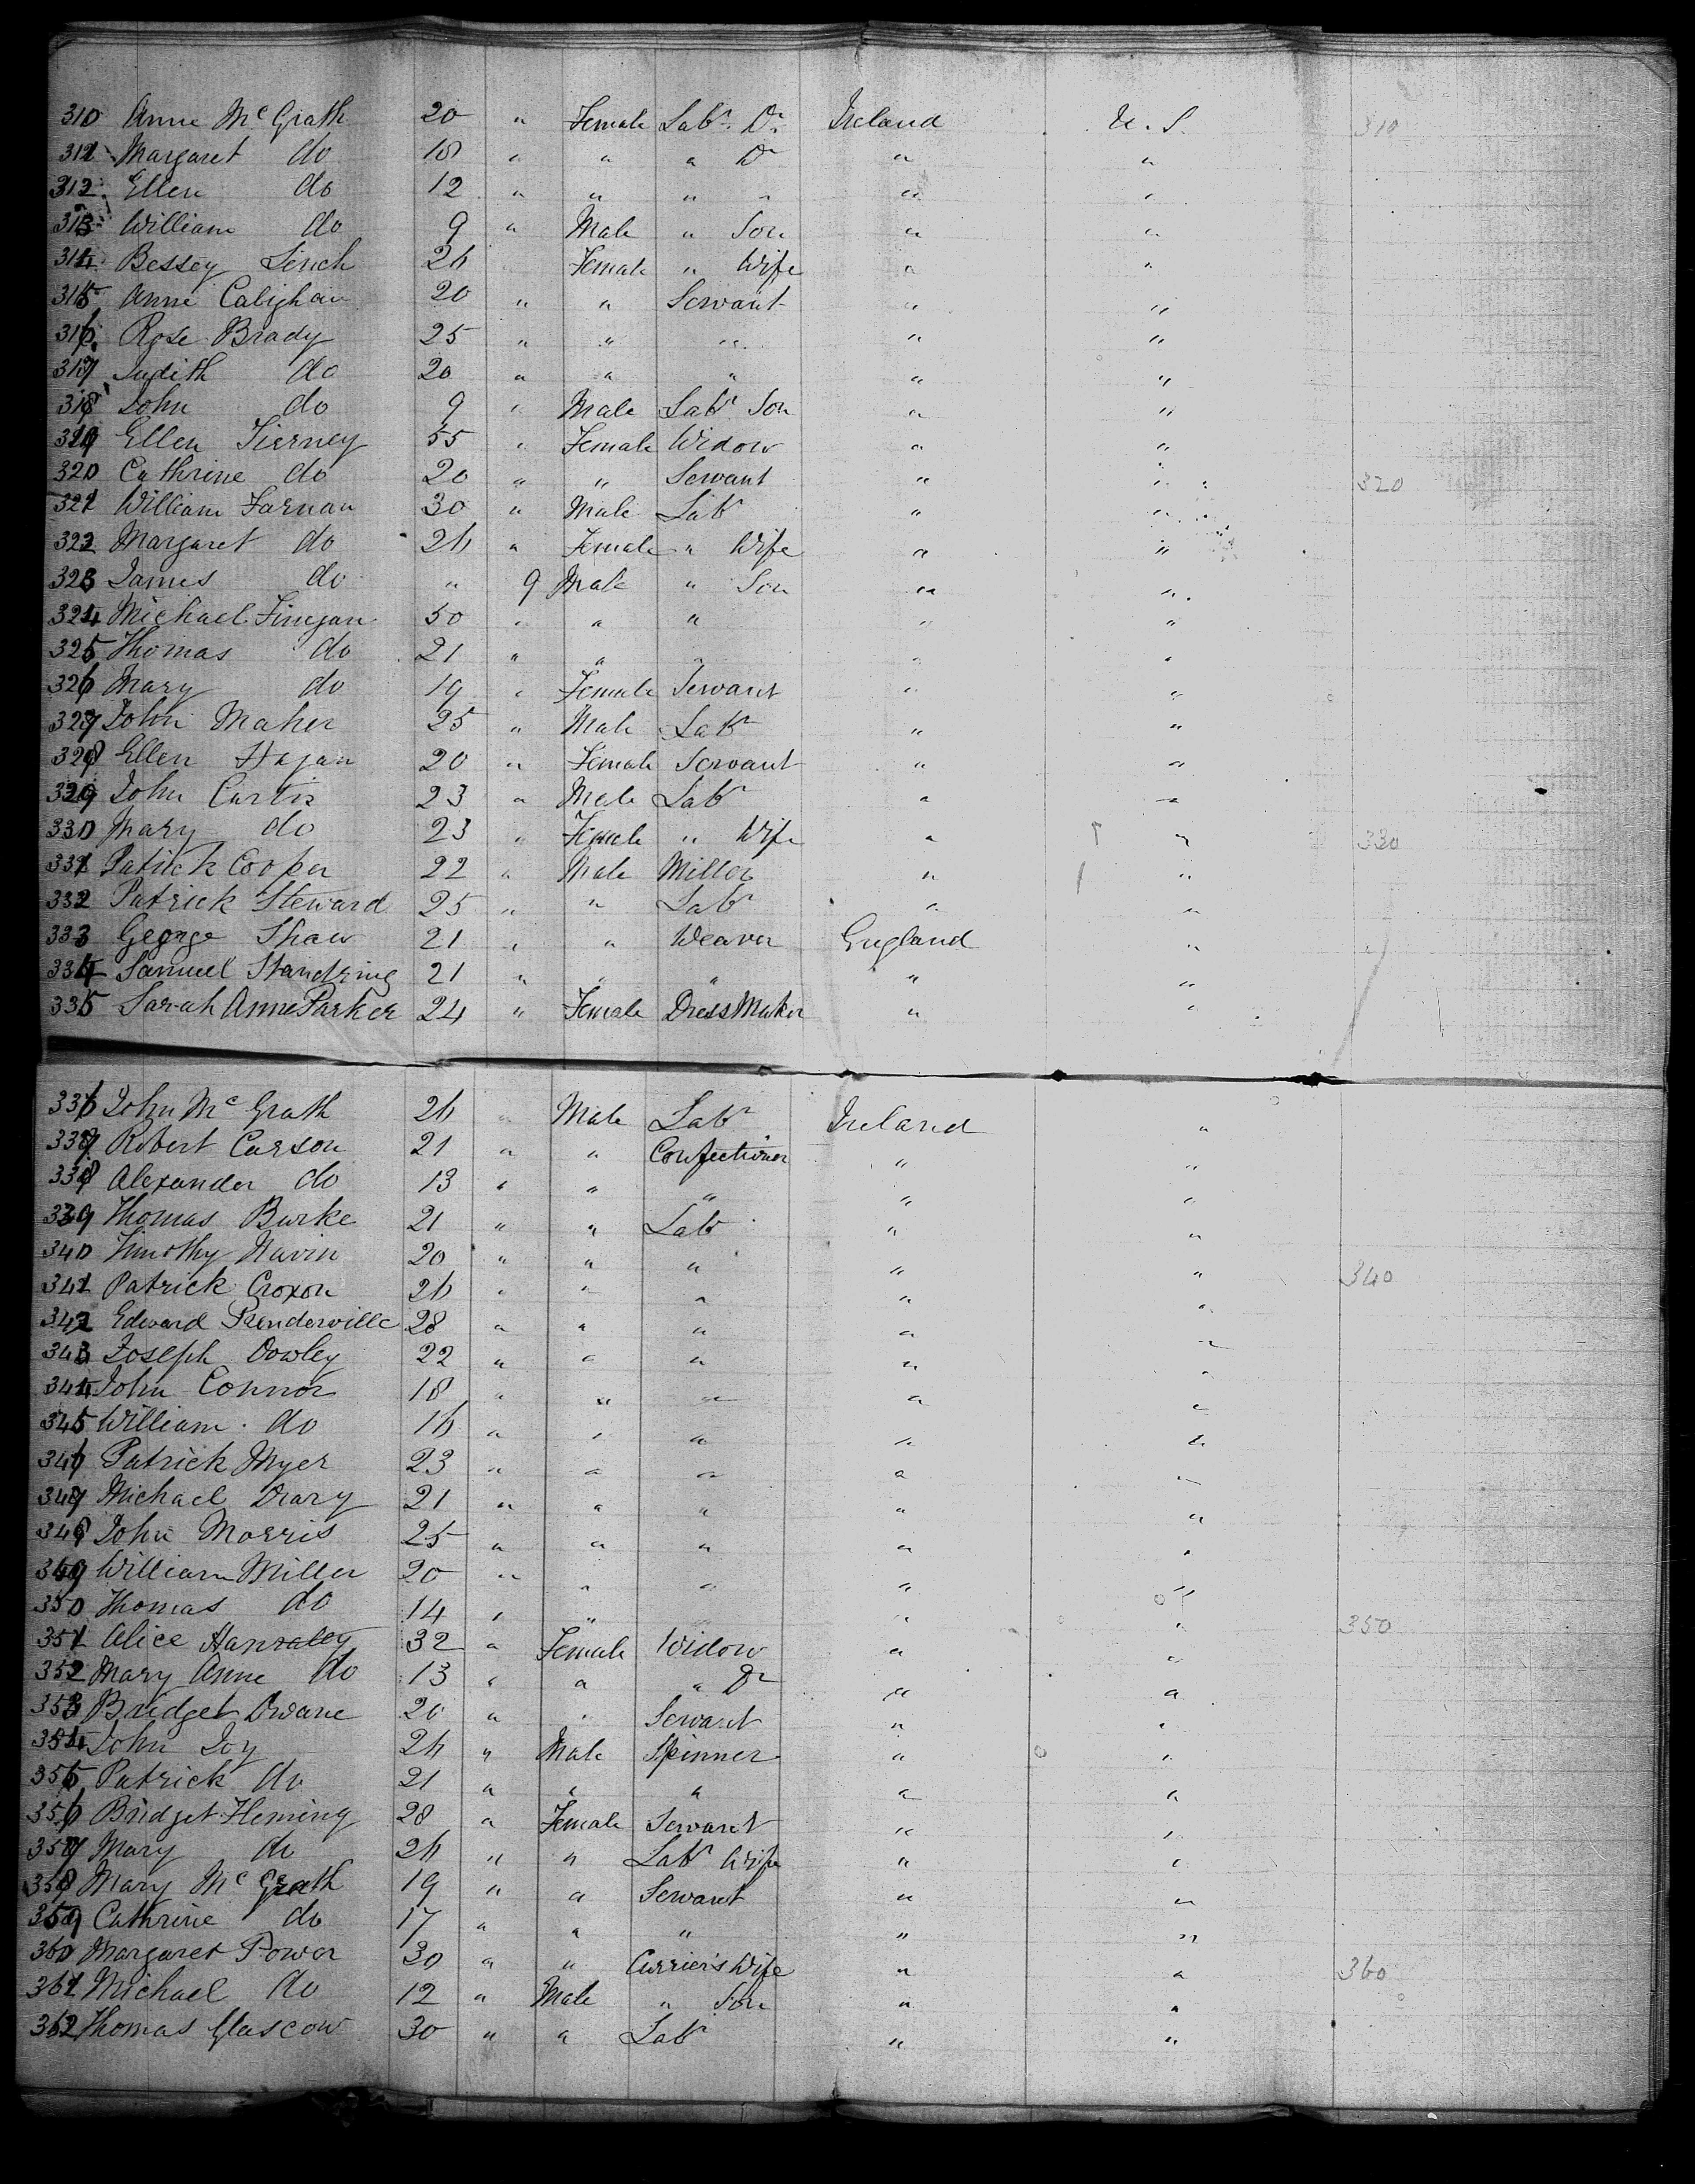 310 Anne McGrath 20 " Female Labr. Dr Ireland U. S. 310
311 Margaret do 18 " " " Dr " "
312 Ellen do 12 " " " " " "
313 William do 9 " Male " Son " "
314 Bessey Linch 26 " Female " Wife " "
315 Anne Calighan 20 " " Servant " "
316 Rose Brady 25 " " " " "
317 Judith do 20 " " " " "
318 John do 9 " Male Labr Son " "
319 Ellen Tierney 55 " Female Widow " "
320 Cathrine do 20 " " Servant " " 320
321 William Farnan 30 " Male Labr " "
322 Margaret do 26 " Female " Wife " "
323 James do " 9 Male " Son " "
324 Michael Finegan 50 " " " " "
325 Thomas do 21 " " " " "
326 Mary do 19 " Female Servant " "
327 John Maher 25 " Male Labr " "
328 Ellen Hagan 20 " Female Servant " "
329 John Curtis 23 " Male Labr " "
330 Mary do 23 " Female " Wife " " 330
331 Patrick Cooper 22 " Male Miller " "
332 Patrick Steward 25 " " Labr " "
333 George Shaw 21 " " Weaver England "
334 Samuel Standring 21 " " " " "
335 Sarah Anne Parker 24 " Female Dress Maker " "
336 John McGrath 26 " Male Labr Ireland "
337 Robert Carson 21 " " Confectioner " "
338 Alexander do 13 " " " " "
339 Thomas Burke 21 " " Labr " "
340 Timothy Navin 20 " " " " " 340
341 Patrick Croxon 26 " " " " "
342 Edward Prenderville 28 " " " " "
343 Joseph Dowley 22 " " " " "
344 John Connor 18 " " " " "
345 William do 16 " " " " "
346 Patrick Myer 23 " " " " "
347 Michael Drary 21 " " " " "
348 John Morris 25 " " " " "
349 William Miller 20 " " " " "
350 Thomas do 14 " " " " " 350
351 Alice Hanraley 32 " Female Widow " "
352 Mary Anne do 13 " " " Dr " "
353 Bridget Dwane 20 " " Servant " "
354 John Joy 26 " Male Spinner " "
355 Patrick do 21 " " " " "
356 Bridget Fleming 28 " Female Servant " "
357 Mary do 26 " " Labr Wife " "
358 Mary McGrath 19 " " Servant " "
359 Cathrine do 17 " " " " "
360 Margaret Power 30 " " Currier's Wife " " 360
361 Michael do 12 " Male " Son " "
362 Thomas Glascow 30 " " Labr " "